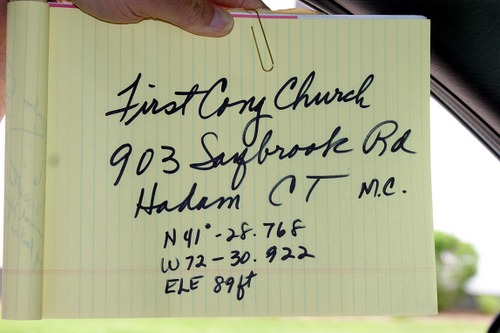 First Cong Church
903 Saybrook Rd
Hadam CT M.C.
N 41° - 28.768
W 72 - 30.922
ELE 89ft